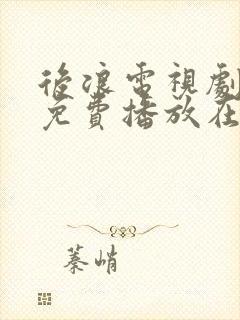 後浪電視劇
免費播放在
蓁峭